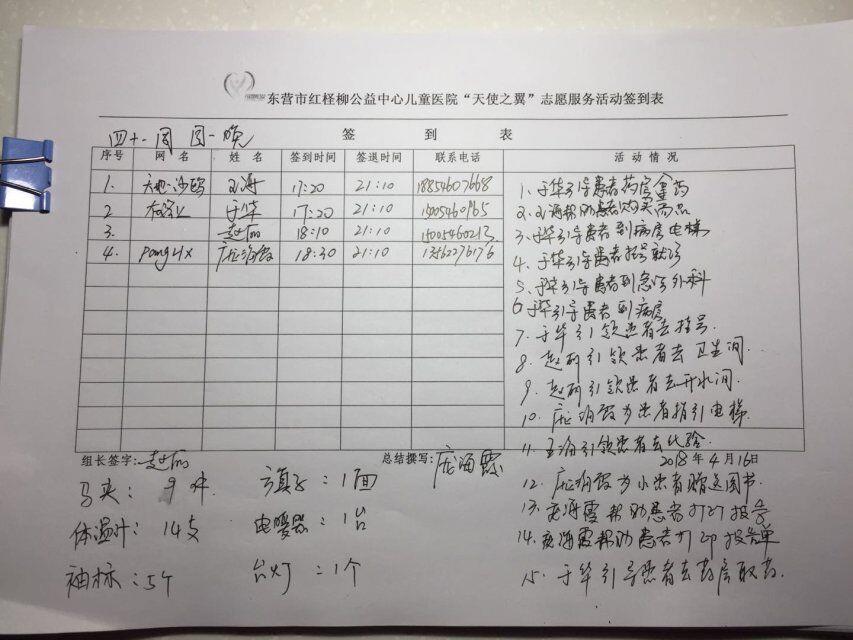 东营市红柽柳公益中心儿童医院“天使之翼”志愿服务活动签到表
四十一周 周一晚
签 到 表
序号 网 名 姓 名 签到时间 签退时间 联系电话 活 动 情 况
1. 天地一沙鸥 王海 17:20 21:10 18854607668
2 于华 17:20 21:10
3. 赵丽 18:10 21:10
4. Panghx 庞海霞 18:30 21:10 13562276176
1. 于华引导患者药房拿药
2. 王海帮助患者购买商品
3. 于华引导患者到病房电梯
4. 于华引导患者挂号就诊
5. 于华引导患者到急诊外科
6 于华引导患者到病房
7. 于华引领患者去挂号.
8. 赵丽引领患者去卫生间.
9. 赵丽引领患者去开水间.
10. 庞海霞为患者指引电梯.
11. 王海引领患者去化验.
组长签字: 赵丽 总结撰写: 庞海霞 2018年4月16日
12. 庞海霞为小患者赠送图书.
13. 庞海霞帮助患者打印报告
14. 庞海霞帮助患者打印报告单
15. 于华引导患者去药房取药.
马夹: 9件 旗子: 1面
体温计: 14支 电暖器: 1台
袖标: 5个 台灯: 1个